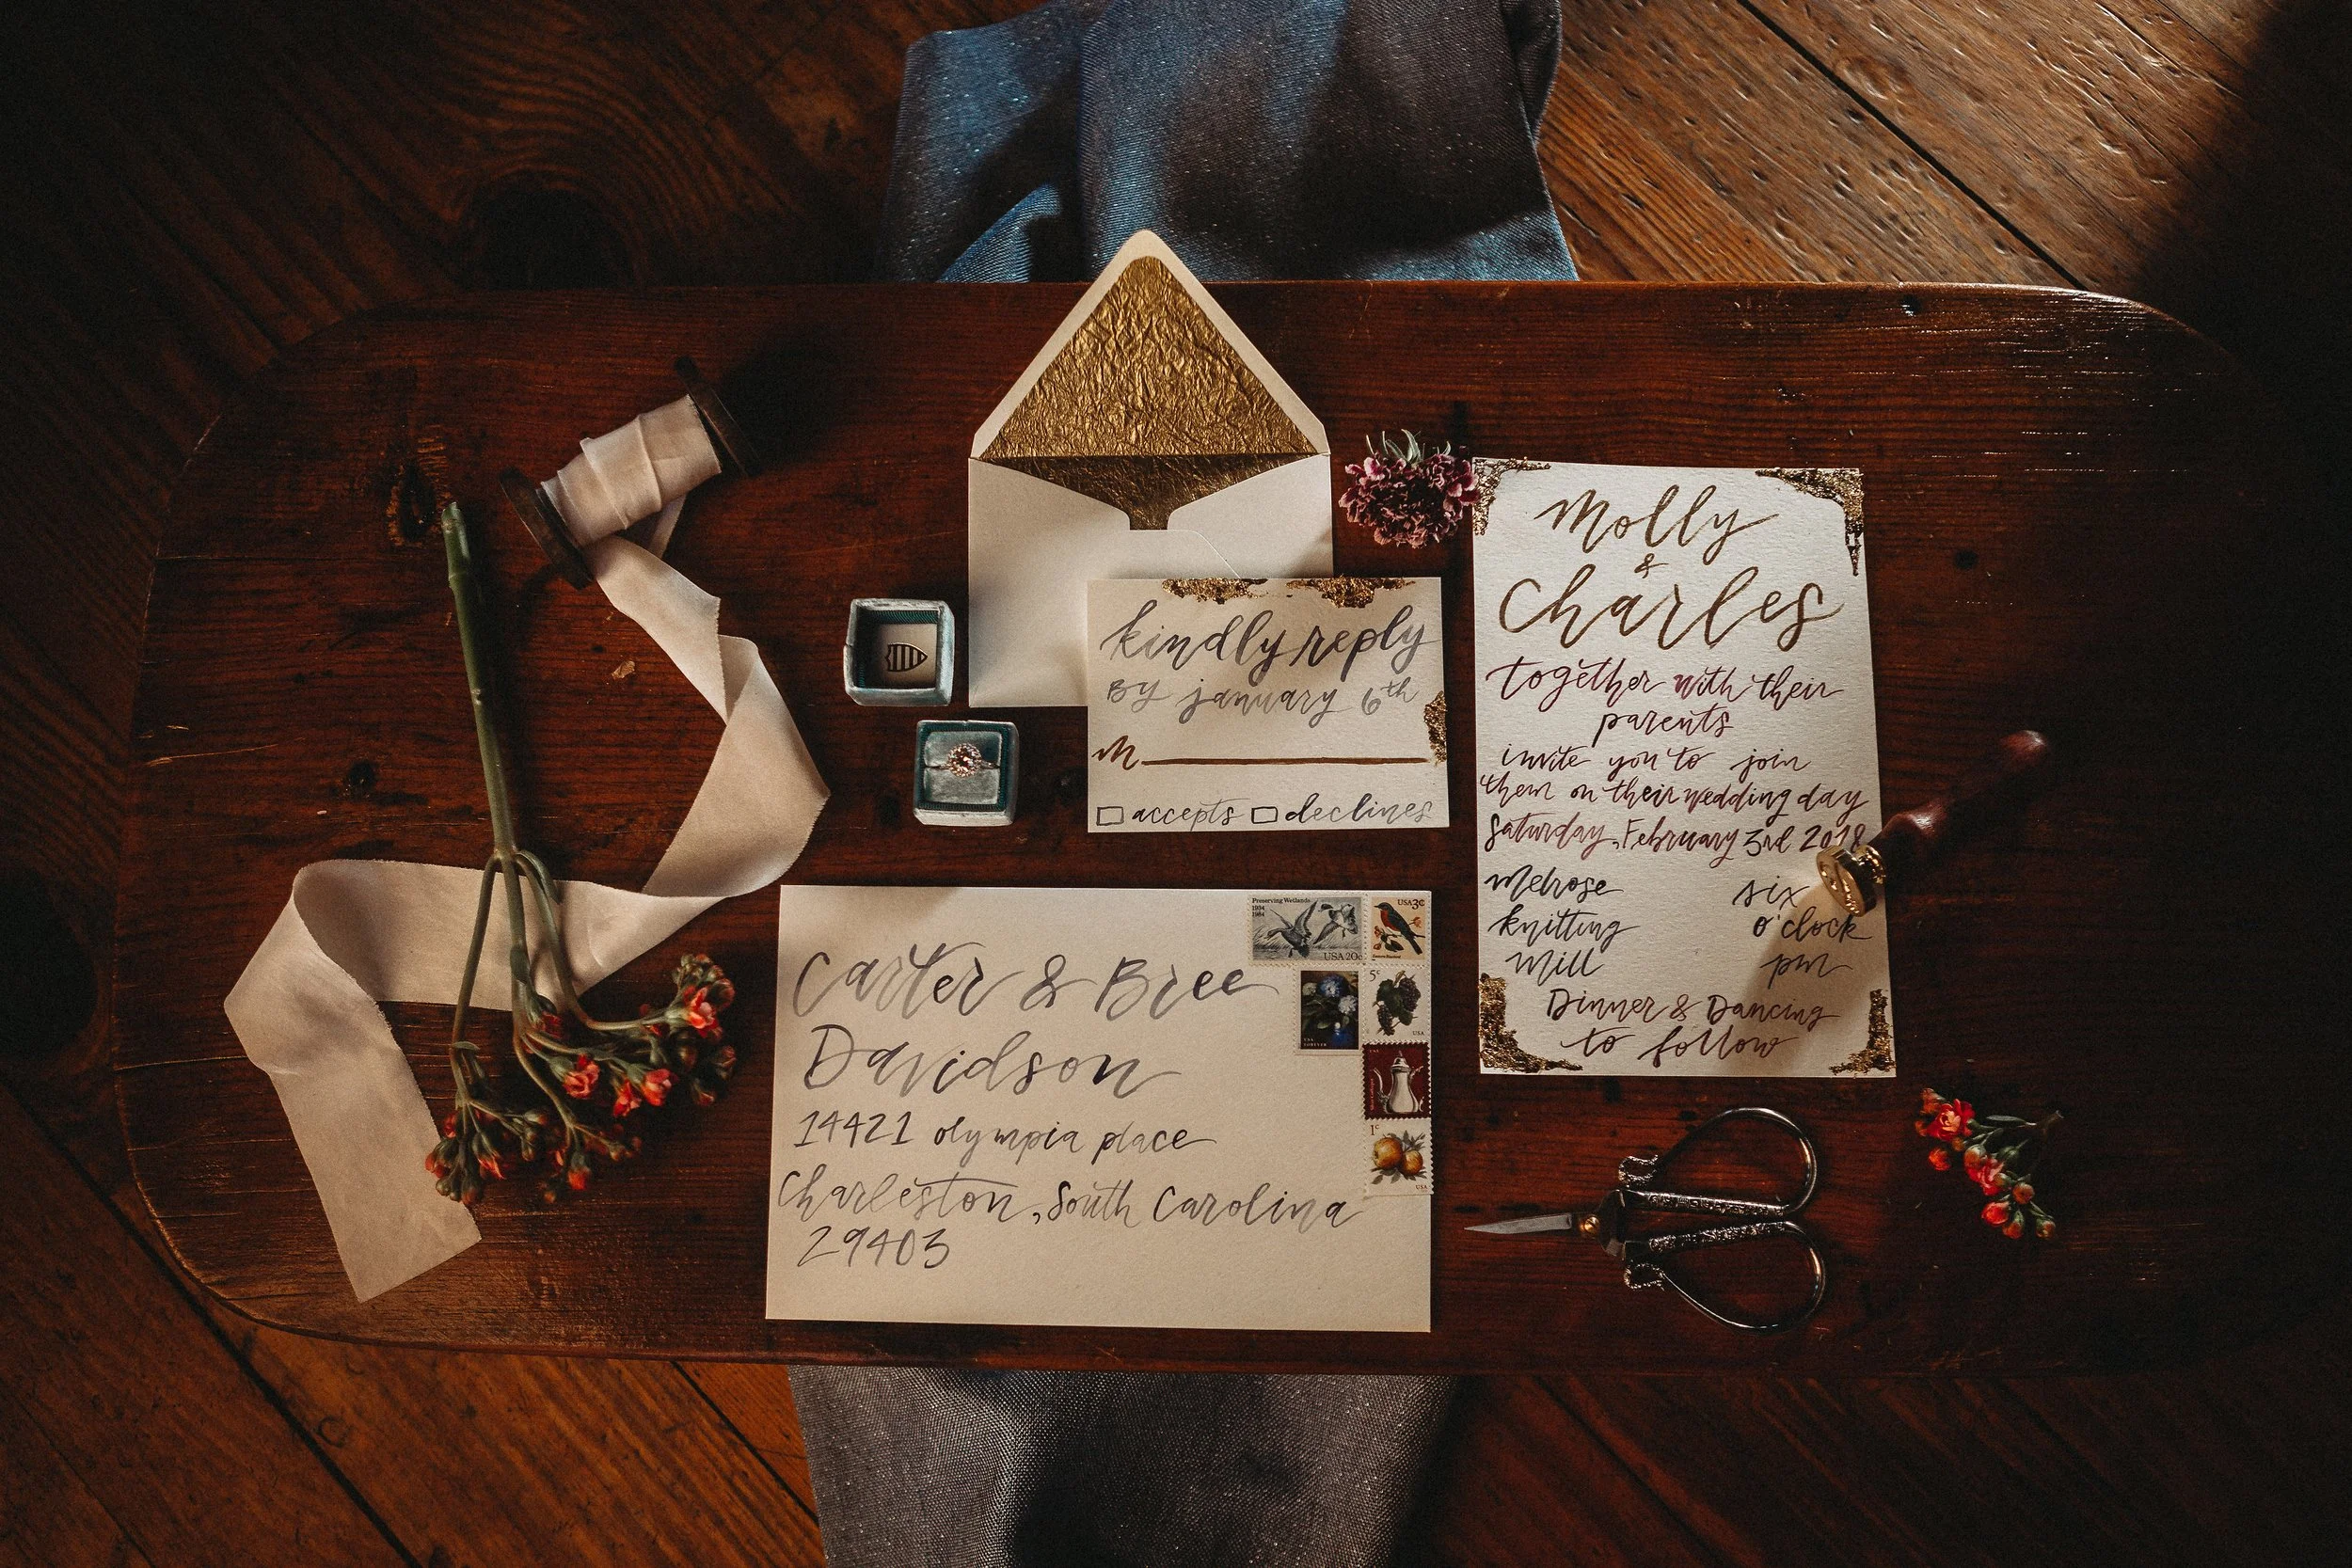 Molly
&
Charles
together with their
parents
invite you to join
them on their wedding day
Saturday, February 3rd 2018
Melrose
knitting
Mill
six
o'clock
pm
Dinner & Dancing
to follow
kindly reply
By january 6th
M
accepts declines
Carter & Bree
Davidson
14421 olympia place
Charleston, South Carolina
29403
Preserving Wetlands
1934
1984
USA 20c
USA 3c
5c
USA
USA
FOREVER
1c
USA